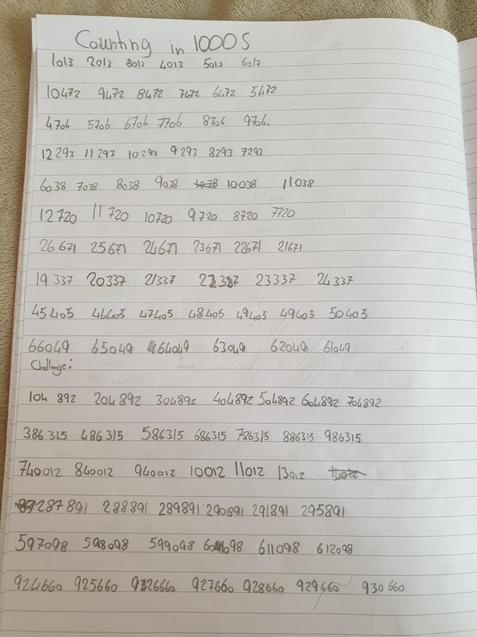 Counting in 1000s
1013 2013 3013 4013 5013 6013
10472 9472 8472 7472 6472 5472
4706 5706 6706 7706 8706 9706.
12293 11293 10293 9293 8293 7293
6038 7038 8038 9038 10038 11038
12720 11720 10720 9720 8720 7720
26671 25671 24671 23671 22671 21671
19337 20337 21337 22337 23337 24337
45405 46405 47405 48405 49403 49403 50403
66049 65049 64049 63049 62049 61049
Challenge:
104892 204892 304892 404892 504892 604892 704892
386315 486315 586315 686315 786315 886315 986315
740012 840012 940012 10012 11012 13012
287891 288891 289891 290891 291891 295891
597098 598098 599098 611098 612098
924660 925660 927660 928660 929660 930660